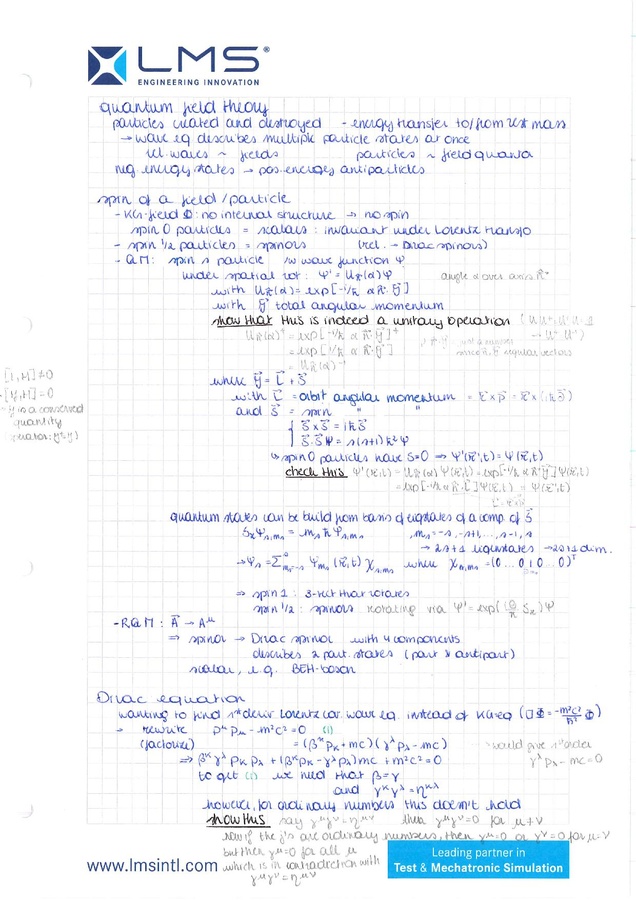 LMS®
ENGINEERING INNOVATION
quantum field theory
particles created and destroyed - energy transfer to/from rest mass
→ wave eq describes multiple particle states at once
rel. waves ~ fields particles ~ field quanta
neg. energy states → pos. energy antiparticles
spin of a field / particle
- KG-field Φ: no internal structure → no spin
spin 0 particles = scalars : invariant under Lorentz transfo
- spin 1/2 particles = spinors (rel. → Dirac spinors)
- QM: spin s particle /w wave function Ψ
under spatial rot: Ψ' = U_R(α)Ψ angle α over axis
with U_R(α) = exp[-i/ħ α
with J⃗ total angular momentum
show that this is indeed a unitary operation
U_R(α)⁺ = exp[-i/ħ α
= exp[i/ħ α
= U_R(α)⁻¹
where J⃗ = L⃗ + S⃗
[L,H]≠0
with L⃗ = orbit angular momentum = r⃗ × p⃗
-[J,H]=0
and S⃗ = spin " "
J is a conserved
quantity
{ S⃗ × S⃗ = iħS⃗
S⃗·S⃗Ψ = s(s+1)ħ²Ψ
↳ spin 0 particles have S=0 ⇒ Ψ'(r⃗',t) = Ψ(r⃗,t)
check this
quantum states can be build from basis of eigstates of a comp. of S⃗
m_s = -s, -s+1, ..., s-1, s
→ 2s+1 eigenstates → 2s+1 dim.
where
⇒ spin 1 : 3-vect that rotates
spin 1/2 : spinors rotating via Ψ' = exp(
- RQM : A⃗ → A^μ
⇒ spinor → Dirac spinor with 4 components
describes 2 part. states (part & antipart)
scalar, e.g. BEH-boson
Dirac equation
wanting to find 1st deriv Lorentz cov. wave eq. instead of KG-eq (□Φ = -m²c²/ħ² Φ)
→ rewrite p^μ p_μ - m²c² = 0 (1)
(factorize) = (β^κ p_κ + mc)(γ^λ p_λ - mc) would give 1st order
γ^λ p_λ - mc = 0
to get (1) we need that β = γ
and γ^κ γ^λ = η^κλ
however, for ordinary numbers this doesn't hold
show this say γ^μ γ^ν = η^μν then γ^μ γ^ν = 0 for μ ≠ ν
now if the γ's are ordinary numbers, then γ^μ = 0 or γ^ν = 0 for μ ≠ ν
but then γ^μ = 0 for all μ
which is in contradiction with
γ^μ γ^ν = η^μν
www.lmsintl.com
Leading partner in
Test & Mechatronic Simulation